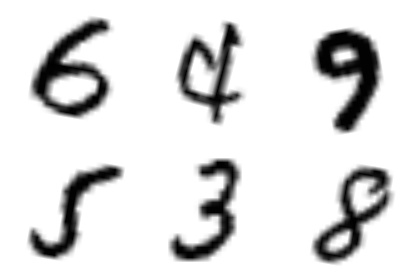 6 4 9
5 3 8